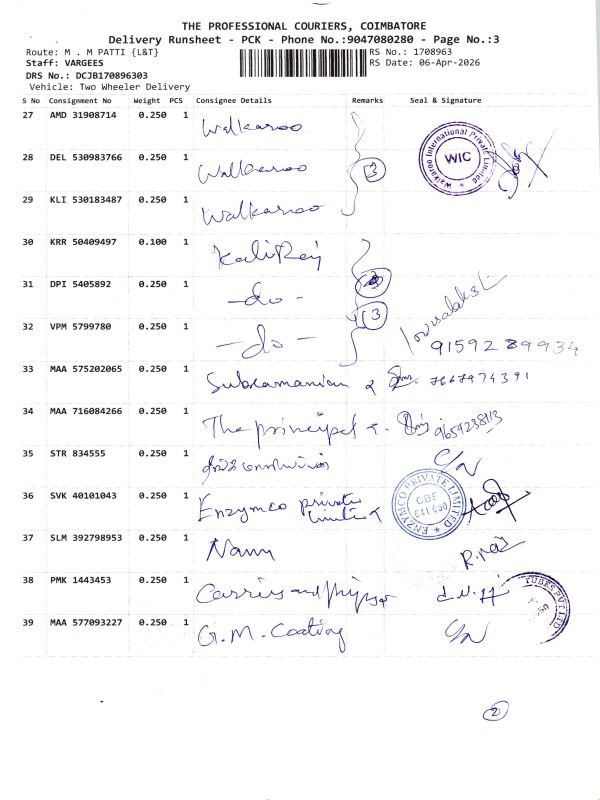 THE PROFESSIONAL COURIERS, COIMBATORE
Delivery Runsheet - PCK - Phone No.:9047080280 - Page No.:3
Route: M . M PATTI {L&T} RS No.: 1708963
Staff: VARGEES RS Date: 06-Apr-2026
DRS No.: DCJB170896303
Vehicle: Two Wheeler Delivery
S No Consignment No Weight PCS Consignee Details Remarks Seal & Signature
27 AMD 31908714 0.250 1 Walkaroo
28 DEL 530983766 0.250 1 Walkaroo 3 Walkaroo International Private Limited WIC
29 KLI 530183487 0.250 1 Walkaroo
30 KRR 50409497 0.100 1 KaliRaj
31 DPI 5405892 0.250 1 -do-
32 VPM 5799780 0.250 1 -do- 3 9159289934
33 MAA 575202065 0.250 1 Subramanian 7667974391
34 MAA 716084266 0.250 1 The principal
35 STR 834555 0.250 1
36 SVK 40101043 0.250 1 Enzymco private Limited ENZYMCO PRIVATE LIMITED CBE 641 030
37 SLM 392798953 0.250 1
38 PMK 1443453 0.250 1 TUBES PVT LTD
39 MAA 577093227 0.250 1 G.M. Coating
2